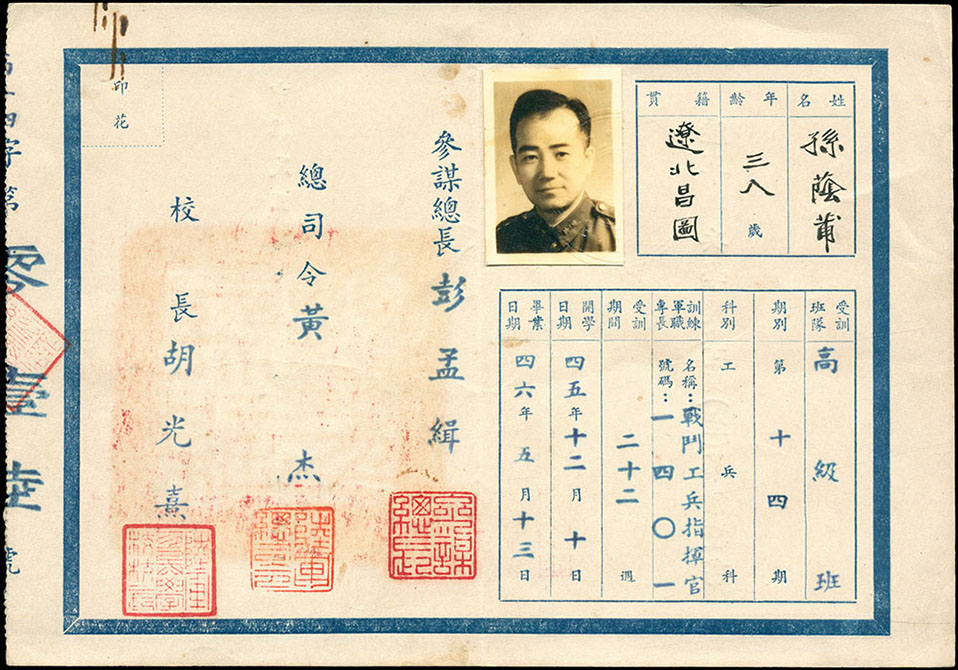 姓名
孫蔭甫
年齡
三八歲
籍貫
遼北昌圖
受訓班隊
高級班
期別
第十四期
科別
工兵科
訓練軍職專長
名稱：戰鬥工兵指揮官
號碼：一四〇一
受訓期間
二十二週
開學日期
四五年十二月十日
畢業日期
四六年五月十三日
參謀總長彭孟緝
總司令黃杰
校長胡光燾
印花
字第零壹陸號